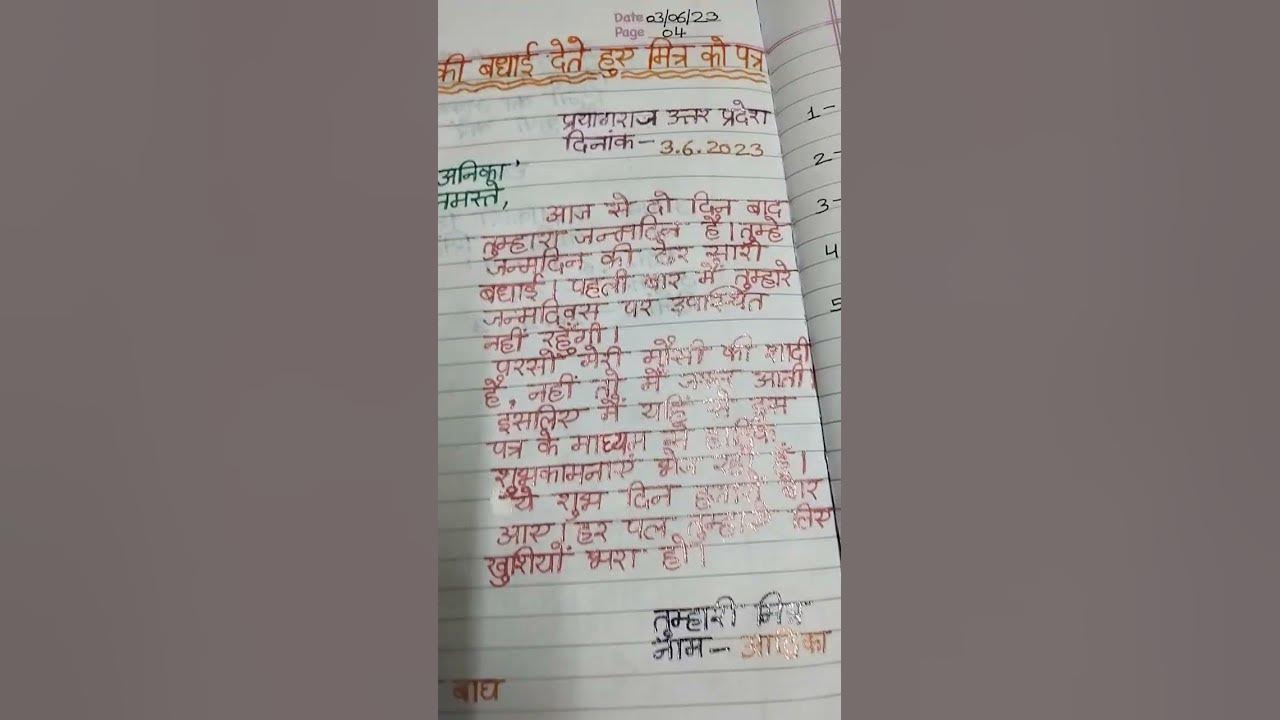 Date 03/06/23
Page 04
की बधाई देते हुए मित्र को पत्र
प्रयागराज उत्तर प्रदेश
दिनांक - 3.6.2023
अनिका'
नमस्ते,
आज से दो दिन बाद
तुम्हारा जन्मदिन है। तुम्हे
जन्मदिन की ढेर सारी
बधाई। पहली बार मैं तुम्हारे
जन्मदिवस पर उपस्थित
नहीं रहूँगी।
परसों मेरी मौसी की शादी
है, नहीं तो मैं जरूर आती।
इसलिए मैं यहि से इस
पत्र के माध्यम से हार्दिक
शुभकामनाएं भेज रही हूँ।
ये शुभ दिन हजारों बार
आए। हर पल तुम्हारे लिए
खुशियों भरा हो।
तुम्हारी मित्र
नाम -
बाघ
1-
2-
3-
4
5